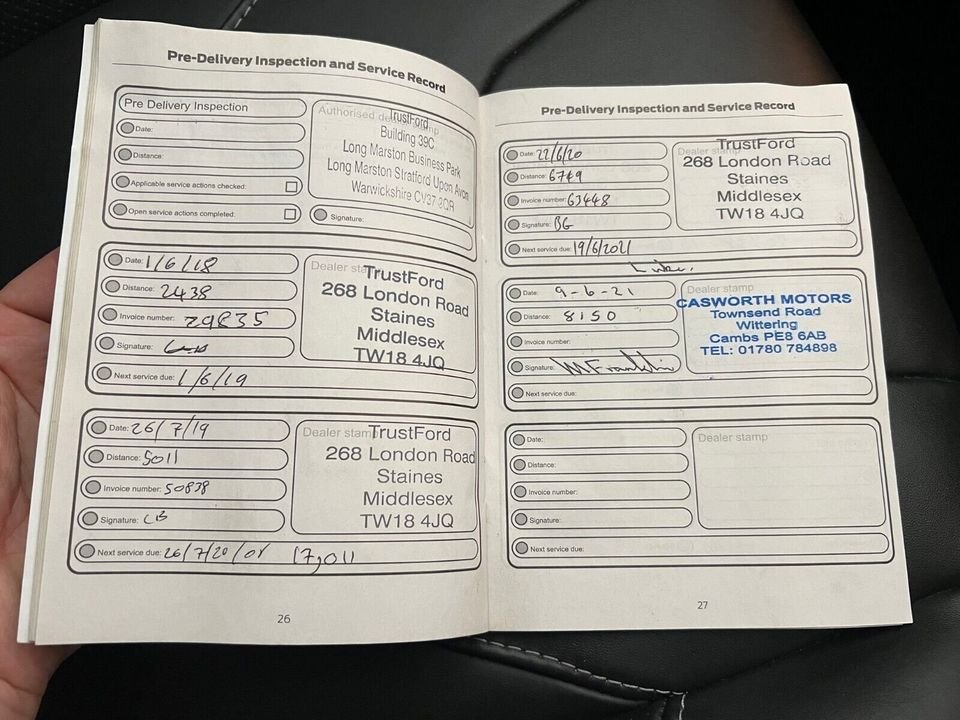 Pre-Delivery Inspection and Service Record
Pre Delivery Inspection
Date:
Distance:
Applicable service actions checked:
Open service actions completed:
Authorised dealer stamp
TrustFord
Building 39C
Long Marston Business Park
Long Marston Stratford Upon Avon
Warwickshire CV37 8QR
Signature:
Date: 1/6/18
Distance: 2438
Invoice number: 29835
Signature:
Next service due: 1/6/19
Dealer stamp
TrustFord
268 London Road
Staines
Middlesex
TW18 4JQ
Date: 26/7/19
Distance: 5011
Invoice number: 50838
Signature: CB
Next service due: 26/7/20/or 17,011
Dealer stamp
TrustFord
268 London Road
Staines
Middlesex
TW18 4JQ
26
Pre-Delivery Inspection and Service Record
Date: 22/6/20
Distance: 6749
Invoice number: 63448
Signature: BG
Next service due: 19/6/2021
Dealer stamp
TrustFord
268 London Road
Staines
Middlesex
TW18 4JQ
Date: 9-6-21
Distance: 8150
Invoice number:
Signature: M Franklin
Next service due:
Dealer stamp
CASWORTH MOTORS
Townsend Road
Wittering
Cambs PE8 6AB
TEL: 01780 784898
Date:
Distance:
Invoice number:
Signature:
Next service due:
Dealer stamp
27